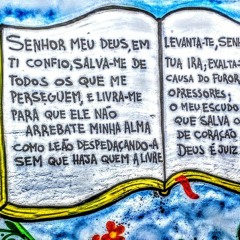 SENHOR MEU DEUS, EM
TI CONFIO, SALVA-ME DE
TODOS OS QUE ME
PERSEGUEM, E LIVRA-ME
PARA QUE ELE NÃO
ARREBATE MINHA ALMA
COMO LEÃO DESPEDAÇANDO-A
SEM QUE HAJA QUEM A LIVRE
LEVANTA-TE, SENH
TUA IRA; EXALTA-
CAUSA DO FUROR
OPRESSORES;
O MEU ESCUDO
QUE SALVA O
DE CORAÇÃO
DEUS É JUIZ